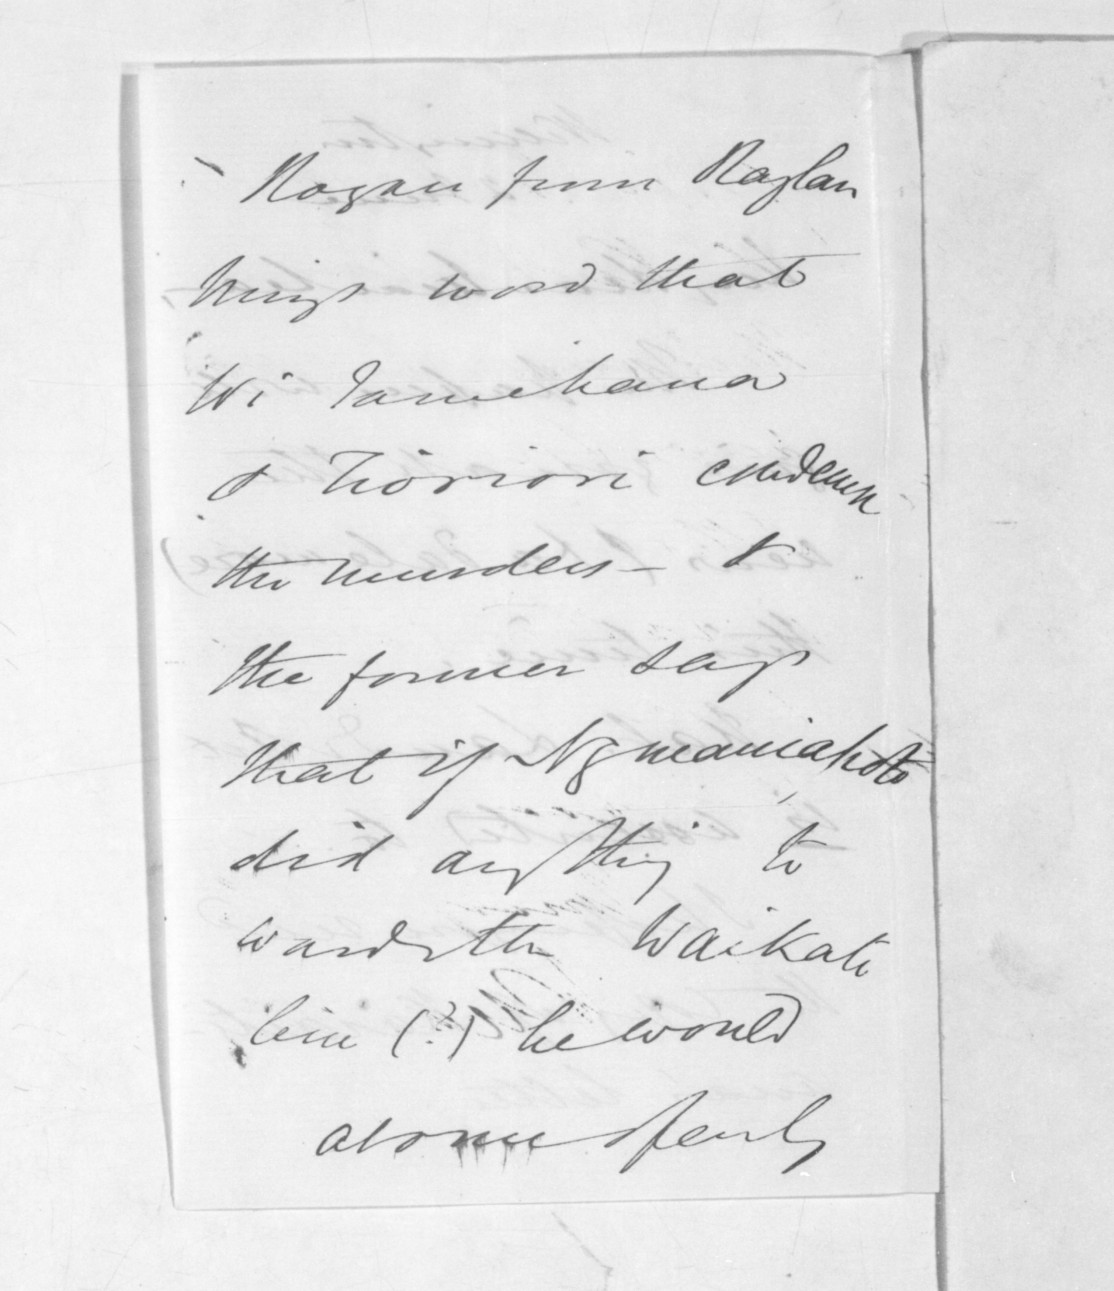 Rogan from Raglan
brings word that
Wi Tamehana
& Tioriori condemn
the murders - &
the former says
that if Ngmaniapoto
did anything to
wards the Waikato
(?) he would
at once openly